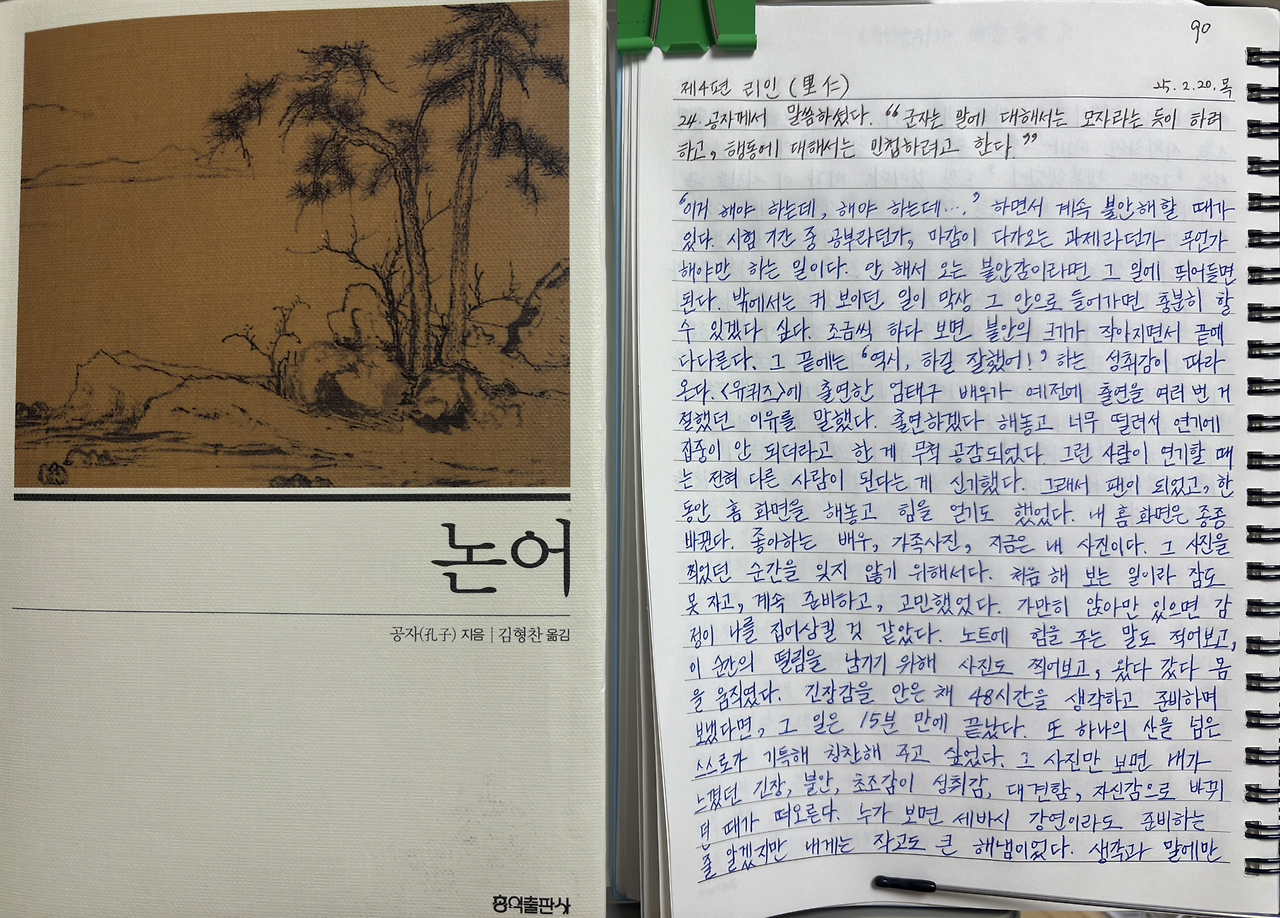 논어
공자(孔子) 지음 | 김형찬 옮김
홍익출판사
90
제4편 리인 (里仁) 25. 2. 20. 목
24. 공자께서 말씀하셨다. “군자는 말에 대해서는 모자라는 듯이 하려
하고, 행동에 대해서는 민첩하려고 한다.”
“이거 해야 하는데, 해야 하는데….” 하면서 계속 불안해할 때가
있다. 시험 기간 중 공부라던가, 마감이 다가오는 과제라던가 무언가
해야만 하는 일이다. 안 해서 오는 불안감이라면 그 일에 뛰어들면
된다. 밖에서는 커 보이던 일이 막상 그 안으로 들어가면 충분히 할
수 있겠다 싶다. 조금씩 하다 보면 불안의 크기가 작아지면서 끝에
다다른다. 그 끝에는 ‘역시, 하길 잘했어!’ 하는 성취감이 따라
온다. <유퀴즈>에 출연한 엄태구 배우가 예전에 출연을 여러 번 거
절했던 이유를 말했다. 출연하겠다 해놓고 너무 떨려서 연기에
집중이 안 되더라고 한 게 무척 공감되었다. 그런 사람이 연기할 때
는 전혀 다른 사람이 된다는 게 신기했다. 그래서 팬이 되었고, 한
동안 홈 화면을 해놓고 힘을 얻기도 했었다. 내 홈 화면은 종종
바뀐다. 좋아하는 배우, 가족사진, 지금은 내 사진이다. 그 사진을
찍었던 순간을 잊지 않기 위해서다. 처음 해 보는 일이라 잠도
못 자고, 계속 준비하고, 고민했었다. 가만히 앉아만 있으면 감
정이 나를 집어삼킬 것 같았다. 노트에 힘을 주는 말도 적어보고,
이 순간의 떨림을 남기기 위해 사진도 찍어보고, 왔다 갔다 몸
을 움직였다. 긴장감을 안은 채 48시간을 생각하고 준비하며
보냈다면, 그 일은 15분 만에 끝났다. 또 하나의 산을 넘은
스스로가 기특해 칭찬해 주고 싶었다. 그 사진만 보면 내가
느꼈던 긴장, 불안, 초조감이 성취감, 대견함, 자신감으로 바뀌
던 때가 떠오른다. 누가 보면 세바시 강연이라도 준비하는
줄 알겠지만 내게는 작고도 큰 해냄이었다. 생각과 말에만